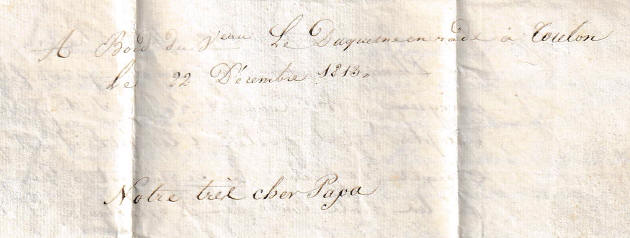 A Bord du Veau Le Duquesne en rade à Toulon
le 22 Décembre 1813.
Notre très cher Papa